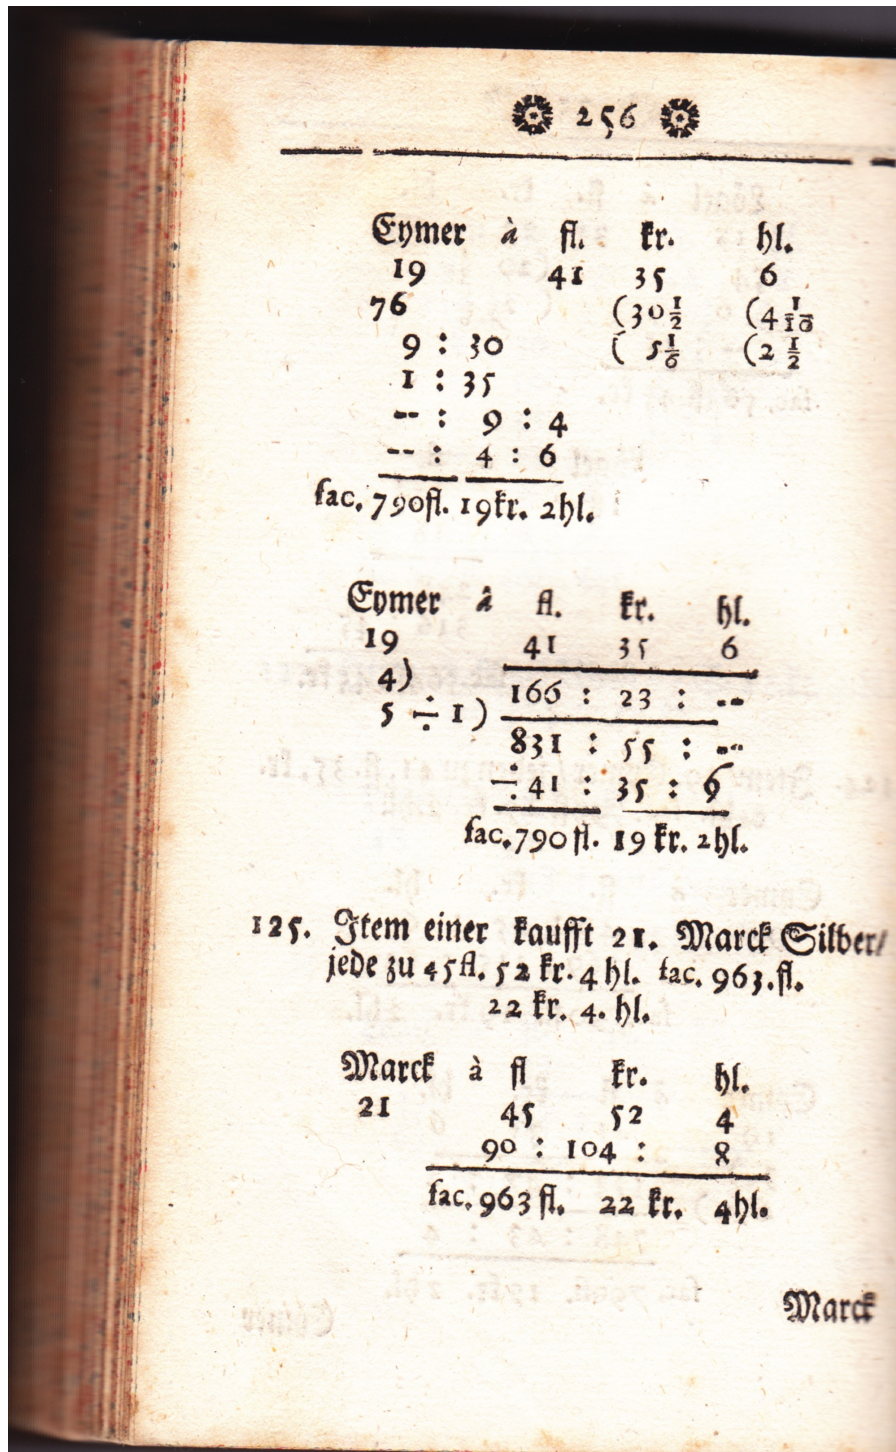 256
Eymer à fl. kr. hl.
19 41 35 6
76 (30 1/2 (4 1/10
9 : 30 ( 5 1/6 (2 1/2
1 : 35
-- : 9 : 4
-- : 4 : 6
fac. 790fl. 19kr. 2hl.
Eymer â fl. kr. hl.
19 41 35 6
4) 166 : 23 : --
5 ÷ 1) 831 : 55 : --
÷ 41 : 35 : 6
fac. 790 fl. 19 kr. 2hl.
125. Item einer kaufft 21. Marck Silber/
jede zu 45fl. 52 kr. 4 hl. fac. 963. fl.
22 kr. 4. hl.
Marck à fl kr. hl.
21 45 52 4
90 : 104 : 8
fac. 963 fl. 22 kr. 4hl.
Marck